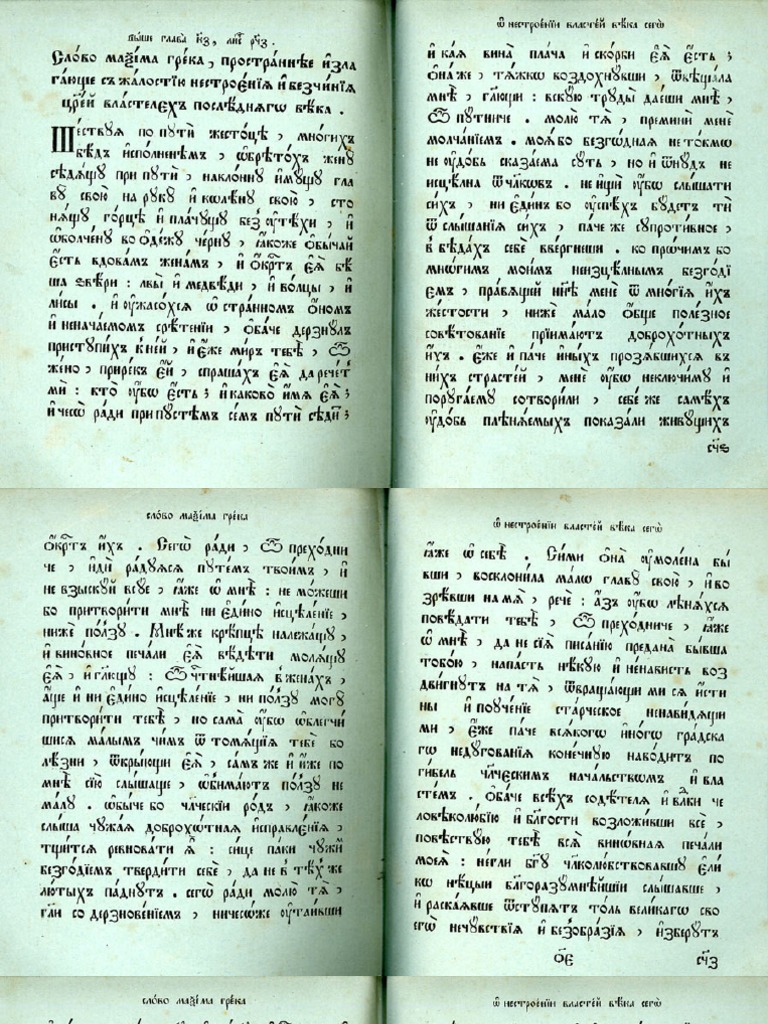 выше глава к҃з, лис҄ рч҃з.
Сло́во маѯі́ма гре́ка, простра́ннѣе и҆зла
га́юще съ жа́лостїю нестрое́нїѧ и҆ безчи́нїѧ
цр҃е́й власте́лехъ послѣ́днѧгѡ вѣ́ка .
Ше́ствуѧ по пути́ же́стоцѣ , мно́гихъ
бѣ́дъ и҆спо́лненѣмъ , ѡ҆брѣто́хъ жену̀
сѣдѧ́щу при пути́ , наклонну и҆му́щу гла
ву̀ свою̀ на руку̀ и҆ колѣну̀ свою̀ , сто
нѧ́щу го́рцѣ и҆ пла́чущу без̾ ᲂу҆тѣ́хи , и҆
ѡ҆болче́ну во ѻ҆де́жу че́рну , ꙗ҆́коже ѻ҆бы́чай
є҆́сть вдова́мъ жена́мъ , и҆ ѻ҆́крⷭ҇тъ є҆ѧ̀ бѣ́
ша ѕвѣ́ри : львы̀ и҆ медвѣ́ди , и҆ во́лцы , и҆
ли́сы . и҆ ᲂу҆жасо́хсѧ ѡ҆ стра́нномъ ѻ҆́номъ
и҆ нена́чаемомъ срѣ́тенїи , ѻ҆ба́че дерзну́лъ
приступи́хъ к не́й , и҆ є҆́же ми́ръ тебѣ̀ , ѽ
же́но , прире́къ є҆́й , спраша́хъ є҆ѧ̀ да рече́тъ
мѝ : кто̀ ᲂу҆́бо є҆́сть ; и҆ каково̀ и҆́мѧ є҆ѧ̀ ;
и҆ чесѡ̀ ра́ди при пу́стѣмъ се́мъ пути́ сѣди́т ;
ѡ҆ нестрое́нїи власте́й вѣ́ка сегѡ̀
и҆ ка́ѧ вина̀ пла́ча и҆ ско́рби є҆ѧ̀ є҆́сть ;
ѻ҆на́ же , тѧ́жкѡ воздохну́вши , ѿвѣща́ла
мнѣ̀ , гл҃ющи : вску́ю труды̀ дае́ши мнѣ̀ ,
ѽ пу́тниче . молю́ тѧ , премини́ менѐ
молча́нїемъ . моѧ́ бо безго́днаѧ не то́кмѡ
неудо́бь сказа́ема су́ть , но и҆ ѿню́дъ не
и҆сцѣ́лна ѿ чл҃кѡвъ . не и҆щѝ ᲂу҆́бѡ слы́шати
си́хъ , ни є҆ди́нъ бо ᲂу҆спѣ́хъ бу́детъ тѝ
ѿ слы́шанїѧ си́хъ , па́че же супроти́вное ,
в бѣда́хъ себѐ вве́ргнеши . ко про́чимъ бо
мнѡ́гимъ мои́мъ неизцѣ́лнымъ безгоді
ємъ , пра́вѧщей ны́нѣ менѐ ѿ мно́гїѧ и҆́хъ
же́стости , ниже́ ма́ло ѻ҆́бще поле́зное
совѣ́тованїе прїи́маютъ доброхо́тныхъ
и҆́хъ . є҆́же и҆ па́че и҆ны́хъ прозѧ́бшихсѧ въ
ни́хъ страсте́й , менѐ ᲂу҆́бѡ неключи́му и҆
поруга́ему сотвори́ли , себе́ же самѣ́хъ
ᲂу҆до́бь плѣнѧ́емыхъ показа́ли живу́щихъ
сч҃ѕ
сло́во маѯі́ма гре́ка
ѻ҆́крⷭ҇тъ и҆́хъ . Сегѡ̀ ра́ди , ѽ преходни
че , и҆дѝ ра́дуѧсѧ путе́мъ твои́мъ , и҆
не взыску́й всу́е , ꙗ҆̀же ѡ҆ мнѣ̀ : не мо́жеши
бо притвори́ти мнѣ̀ ни є҆ди́но и҆сцѣле́нїе ,
ниже́ по́лзу . Мнѣ́ же крѣ́пцѣ належа́щу ,
и҆ вино́вное печа́ли є҆ѧ̀ вѣ́дѣти молѧ́щу
є҆ѧ̀ , и҆ гл҃ющу : ѽ чⷭ҇тнѣ́йшаѧ в жена́хъ ,
а҆́ще и҆ ни є҆ди́но и҆сцѣле́нїе , ни по́лзу могу̀
притвори́ти тебѣ̀ , но сама̀ ᲂу҆́бѡ ѡ҆блегчи́
шисѧ ма́лымъ чи́мъ ѿ томѧ́щїѧ тебѐ бо
лѣ́зни , ѿкры́ющи є҆ѧ̀ , са́мъ же и҆ и҆̀же по
мнѣ̀ сїю̀ слы́шаще , ѡ҆бима́ютъ по́лзу не
ма́лу . ѻ҆бы́че бо чл҃ческїи ро́дъ , ꙗ҆́коже
слы́ша чужа́ѧ доброхо́тнаѧ и҆справле́нїѧ ,
тщи́тсѧ ревнова́ти ꙗ҆̀ : си́це па́ки чужи́
безго́дїемъ тверди́ти себѐ , да не в тѣ́хже
лю́тыхъ паду́тъ . сегѡ̀ ра́ди молю̀ тѧ̀ ,
гл҃и со дерзнове́нїемъ , ничесо́же ᲂу҆таи́вши
ѡ҆ нестрое́нїи власте́й вѣ́ка сегѡ̀
ꙗ҆̀же ѡ҆ себѣ̀ . Си́ми ѻ҆на̀ ᲂу҆моле́на бы́
вши , восклони́ла ма́лѡ главу̀ свою̀ , и҆ во
зрѣ́вши на мѧ̀ , речѐ : а҆́зъ ᲂу҆́бѡ лѣнѧ́хсѧ
повѣ́дати тебѣ̀ , ѽ прехо́дниче , ꙗ҆̀же
ѡ҆ мнѣ̀ , да не сїѧ̀ писа́нїю предана̀ бы́вша
тобо́ю , напа́сть нѣ́кую и҆ не́нависть воз
дви́гнутъ на тѧ̀ , ѿвраща́ющи ми сѧ и҆́сти
ны и҆ поуче́нїе ста́рческое ненави́дѧщи
ми , є҆́же па́че всѧ́когѡ и҆но́гѡ гра́дска
гѡ недугова́нїѧ коне́чную наво́дитъ по
ги́бель чл҃ческимъ нача́льствѡмъ и҆ вла
сте́мъ . Ѻ҆ба́че всѣ́хъ содѣ́телѧ и҆ влⷣки че
ловѣколю́бїю и҆ бл҃гости возложи́вши всѐ ,
повѣ́ствую тебѣ̀ всѧ̀ вино́внаѧ печа́ли
моеѧ̀ : негли бг҃у чл҃колю́бствовавшу є҆ли́
кѡ нѣ́цыи бл҃горазумнѣ́йшїи слы́шавше ,
и҆ раска́ѧвше ѿсту́пѧтъ то́ль вели́кагѡ сво
егѡ̀ нечу́вствїѧ и҆ безѻбра́зїѧ , и҆зберу́тъ
о҃е
сч҃з
сло́во маѯі́ма гре́ка
ѡ҆ нестрое́нїи власте́й вѣ́ка сегѡ̀